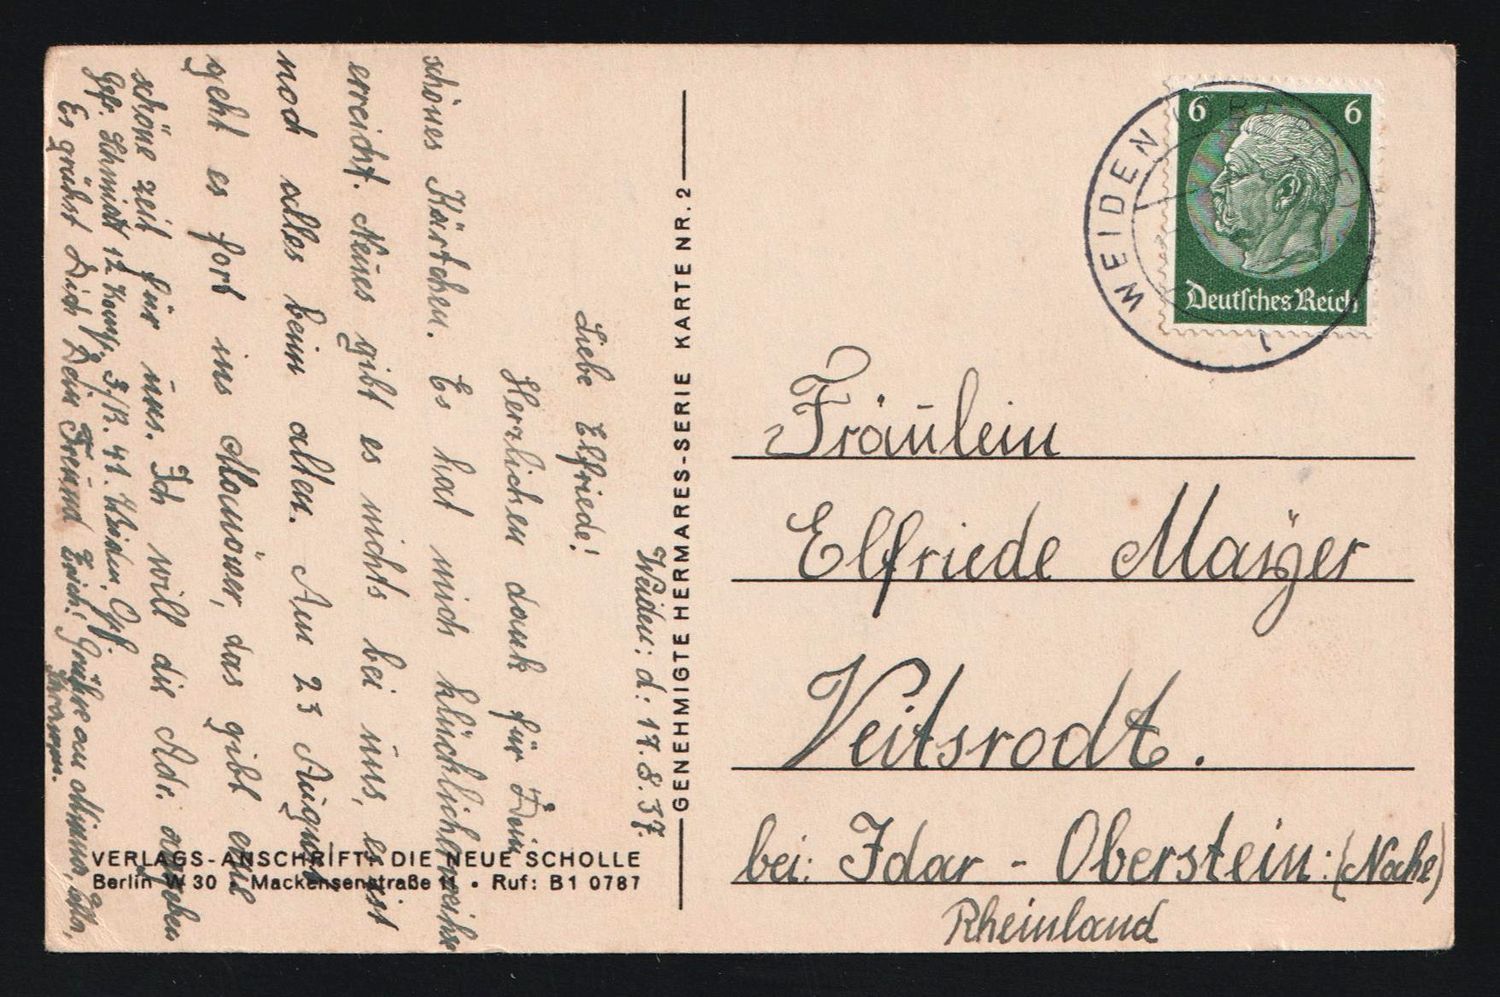 Weiden: d: 17.8.37.
Liebe Elfriede!
Herzlichen dank für Dein
schönes Kärtchen. Es hat mich
erreicht. Neues gibt es nichts bei uns, es ist
noch alles beim alten. Am 23 August
geht es fort ins Manöwer, das gibt eine
schöne zeit für uns. Ich will die Adr. angeben
Gefr. Schmidt 12 Komp. 3/B. 41. Weiden Opf.
Es grüßst Dich Dein Freund Erich! Grüße an Mimmi,
GENEHMIGTE HERMARES-SERIE KARTE NR. 2
VERLAGS-ANSCHRIFT: DIE NEUE SCHOLLE
Berlin W 30 • Mackensenstraße 11 • Ruf: B1 0787
WEIDEN
6 6
Deutsches Reich
Fräulein
Elfriede Mayer
Veitsrodt.
bei: Idar - Oberstein: (Nahe)
Rheinland